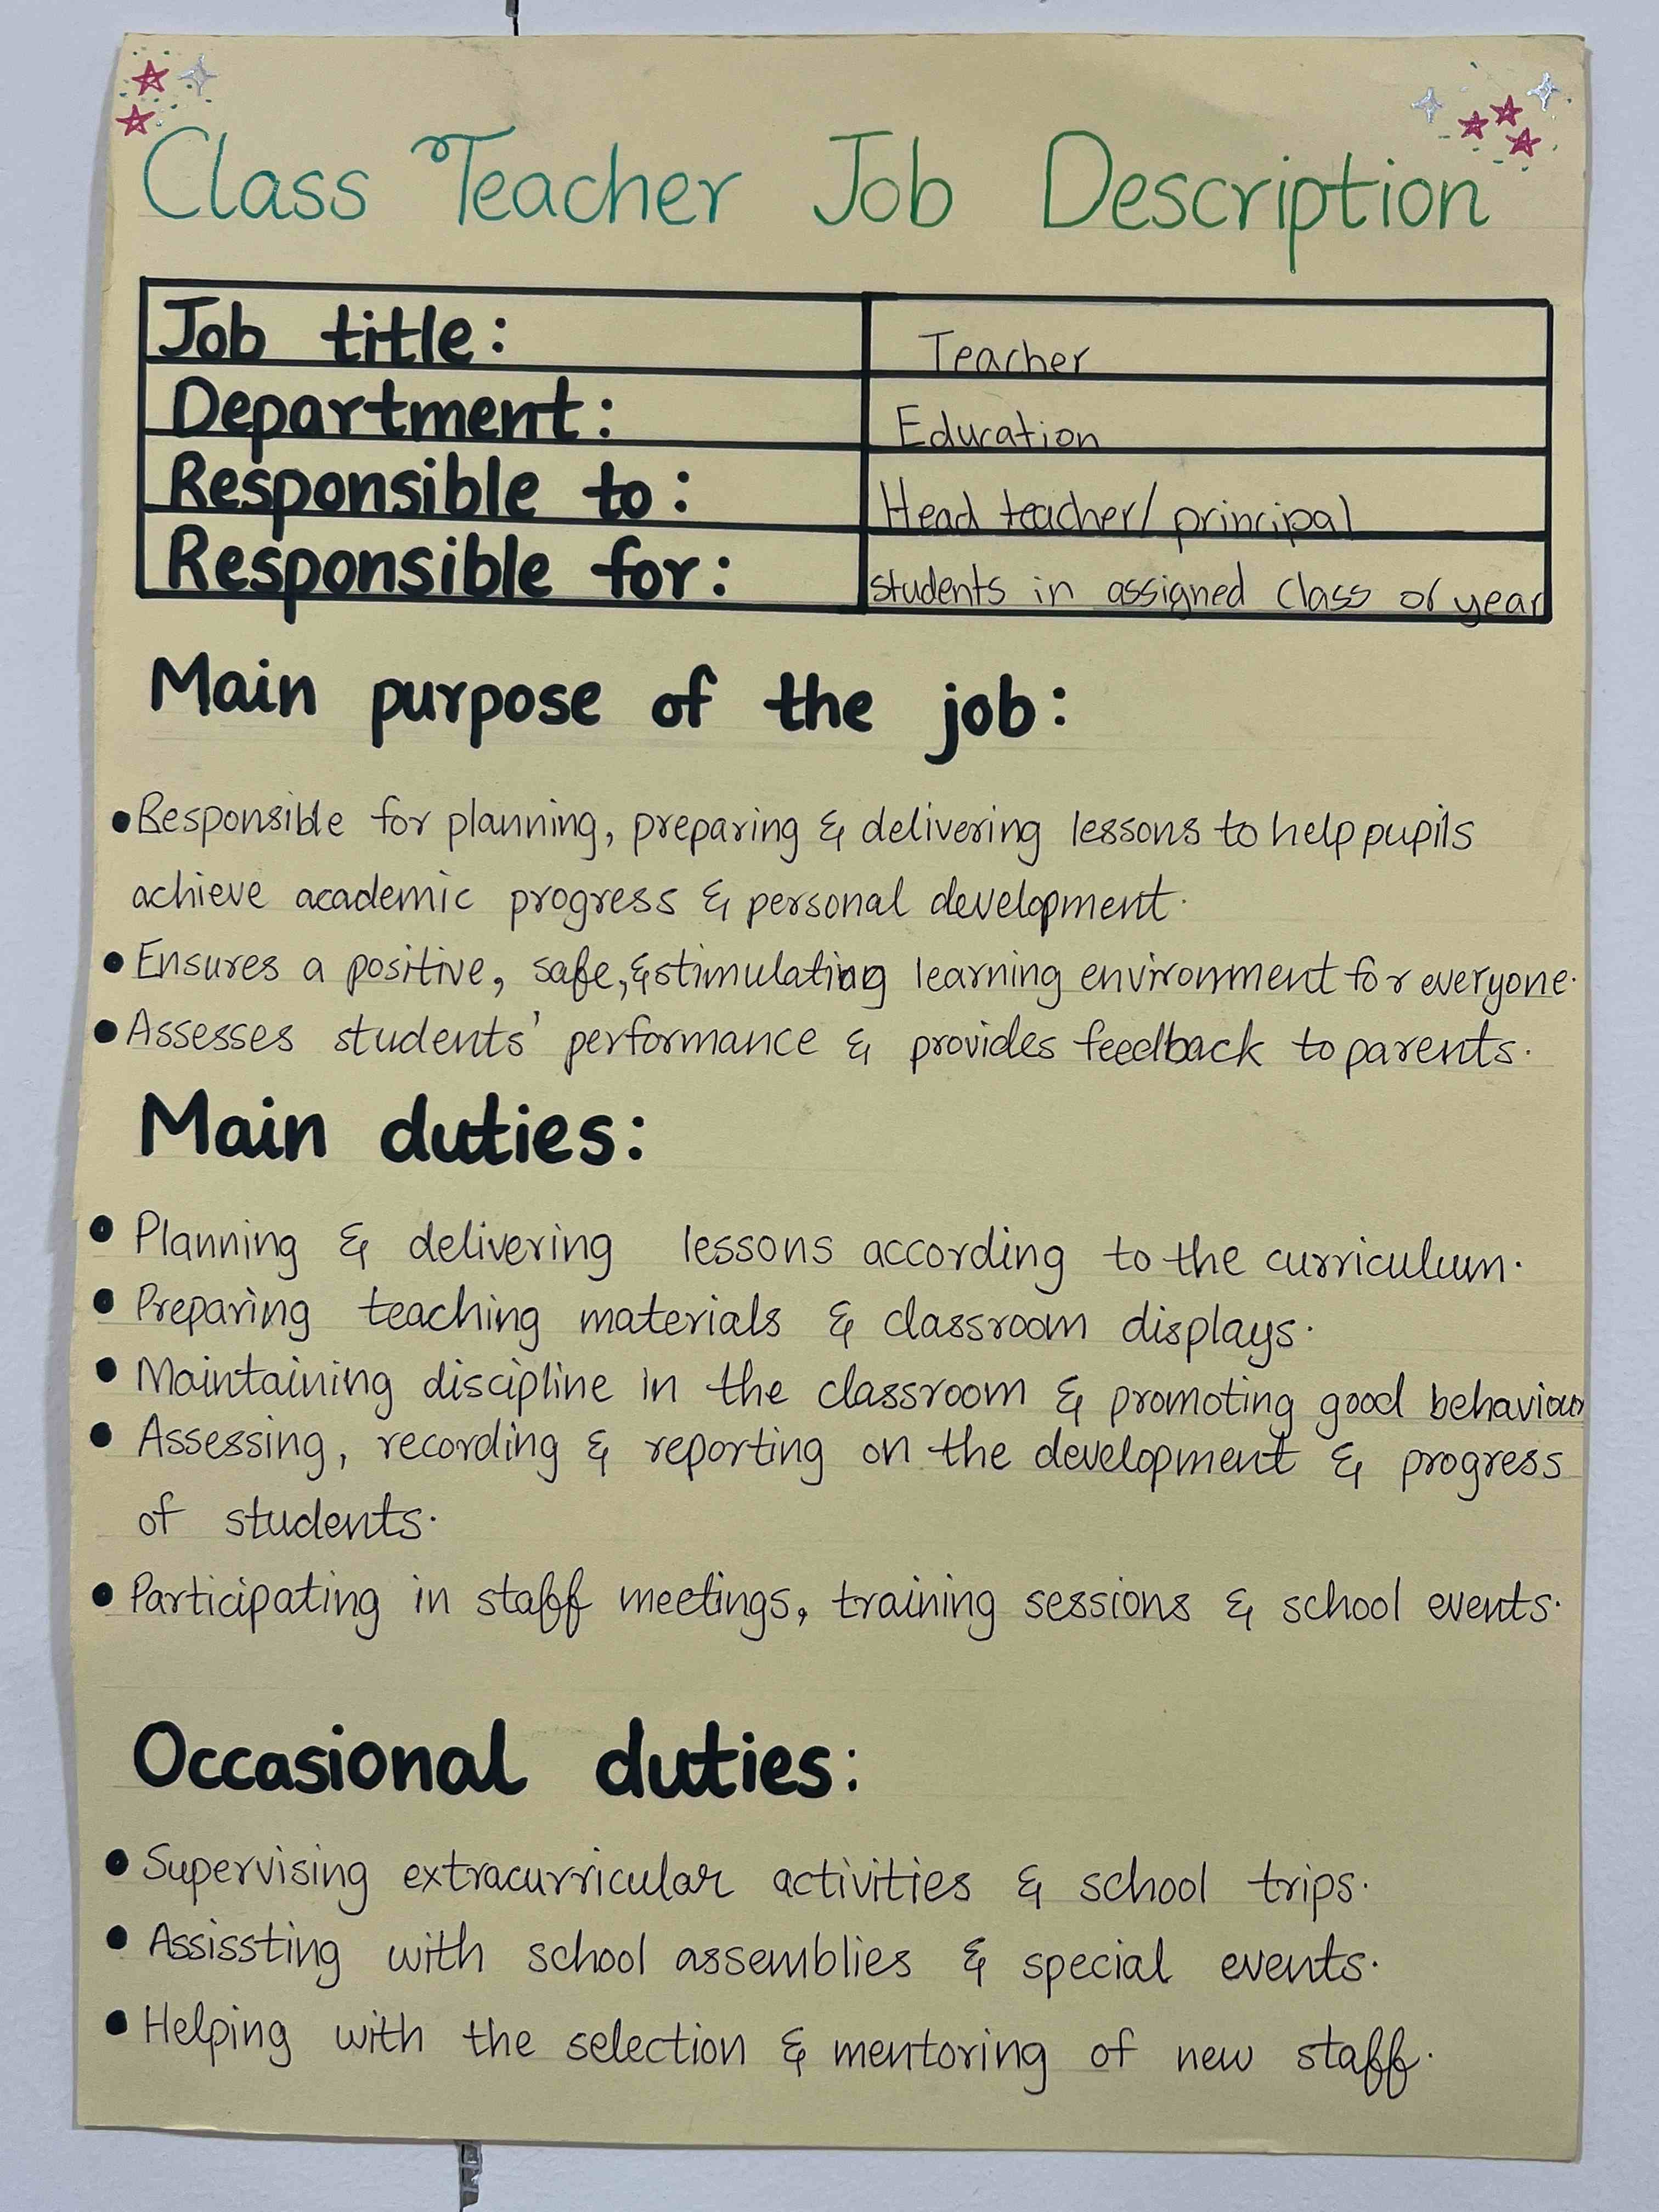 Class Teacher Job Description
Job title: Teacher
Department: Education
Responsible to: Head teacher/principal
Responsible for: students in assigned class or year
Main purpose of the job:
•Responsible for planning, preparing & delivering lessons to help pupils
achieve academic progress & personal development.
•Ensures a positive, safe, & stimulating learning environment for everyone.
•Assesses students' performance & provides feedback to parents.
Main duties:
•Planning & delivering lessons according to the curriculum.
•Preparing teaching materials & classroom displays.
•Maintaining discipline in the classroom & promoting good behaviour
•Assessing, recording & reporting on the development & progress
of students.
•Participating in staff meetings, training sessions & school events.
Occasional duties:
•Supervising extracurricular activities & school trips.
•Assissting with school assemblies & special events.
•Helping with the selection & mentoring of new staff.